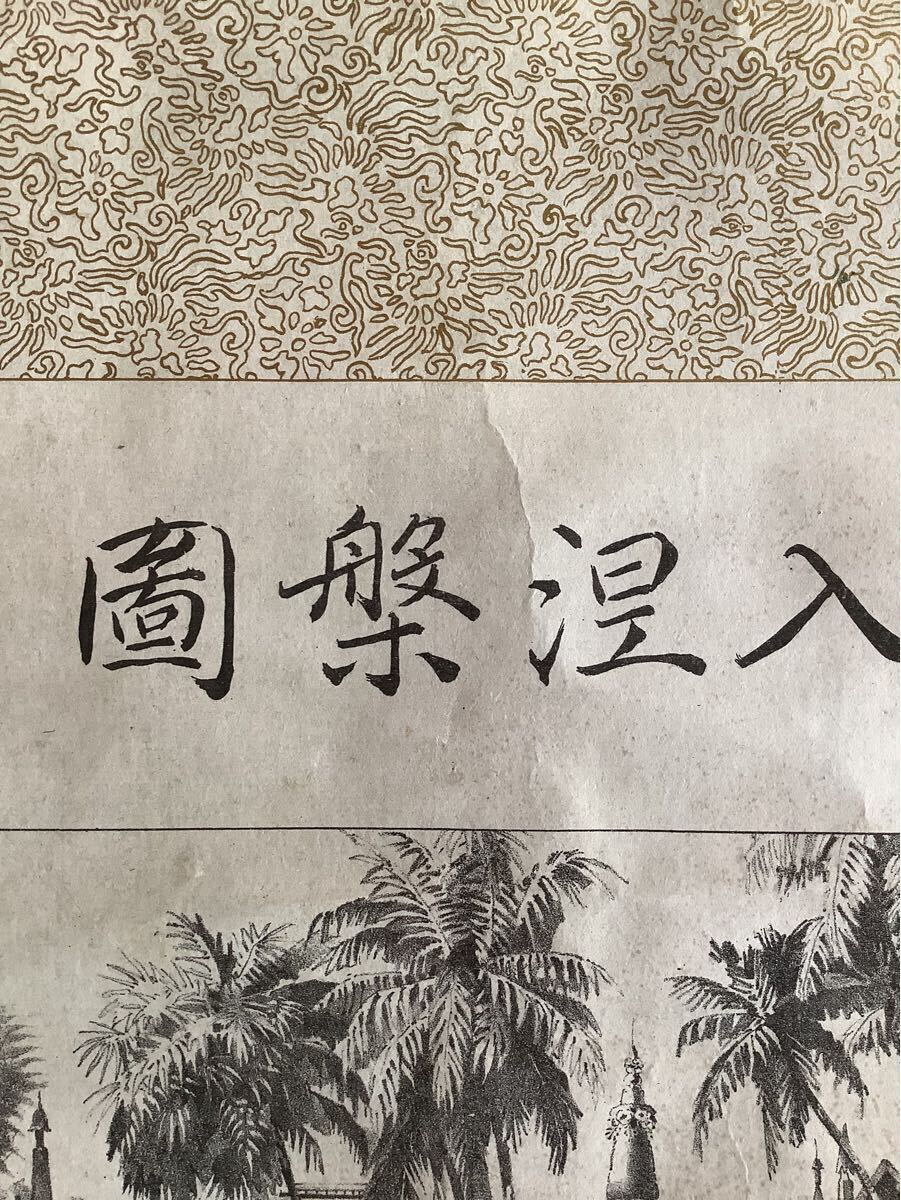 入涅槃圖